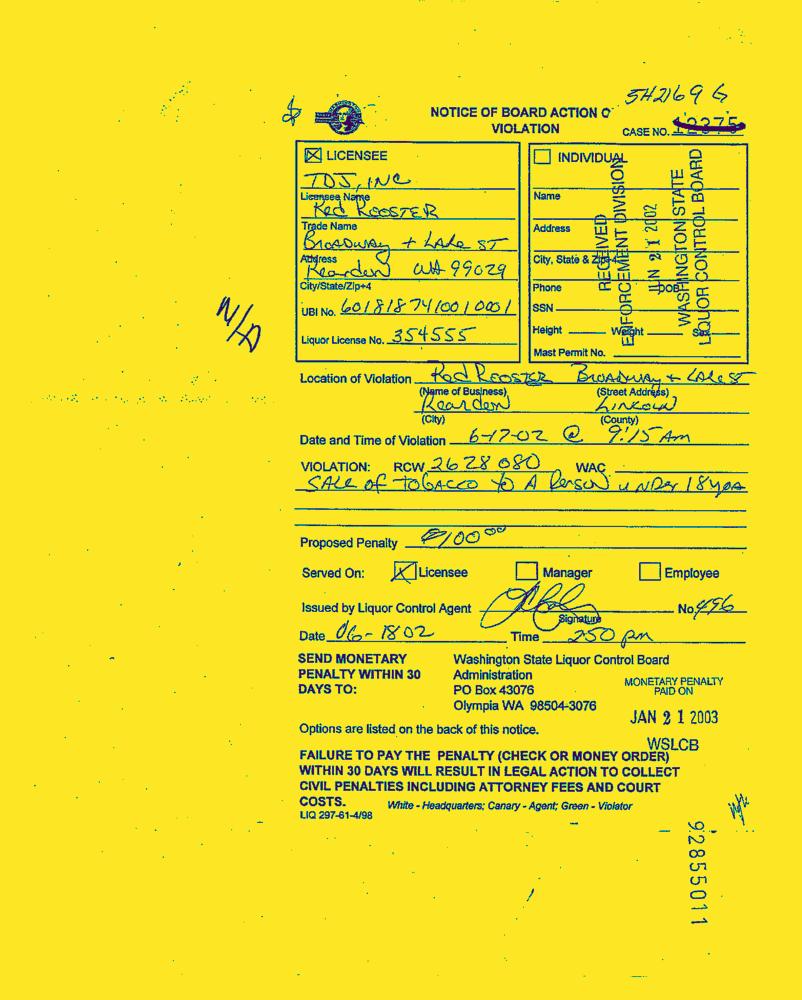 5H2169 G
NOTICE OF BOARD ACTION O
VIOLATION
CASE NO. 12375
☒ LICENSEE
TDJ, INC
Licensee Name
Red ROOSTER
Trade Name
BROADWAY + LAKE ST
Address
Reardon WA 99029
City/State/Zip+4
UBI No. 601818741001 0001
Liquor License No. 354555
☐ INDIVIDUAL
Name
Address
City, State & Zip+4
Phone DOB
SSN
Height Weight Sex
Mast Permit No.
RECEIVED
ENFORCEMENT DIVISION
JUN 21 2002
WASHINGTON STATE
LIQUOR CONTROL BOARD
N/A
Location of Violation Red ROOSTER BROADWAY + LAKE ST
(Name of Business) (Street Address)
Reardon LINCOLN
(City) (County)
Date and Time of Violation 6-17-02 @ 9:15 Am
VIOLATION: RCW 26 28 080 WAC
SALE OF TOBACCO TO A PERSON UNDER 18 yoa
Proposed Penalty $100 00
Served On: ☒ Licensee ☐ Manager ☐ Employee
Issued by Liquor Control Agent No. 496
Signature
Date 06-18 02 Time 250 pm
SEND MONETARY
PENALTY WITHIN 30
DAYS TO:
Washington State Liquor Control Board
Administration
PO Box 43076
Olympia WA 98504-3076
MONETARY PENALTY
PAID ON
JAN 21 2003
WSLCB
Options are listed on the back of this notice.
FAILURE TO PAY THE PENALTY (CHECK OR MONEY ORDER)
WITHIN 30 DAYS WILL RESULT IN LEGAL ACTION TO COLLECT
CIVIL PENALTIES INCLUDING ATTORNEY FEES AND COURT
COSTS.
White - Headquarters; Canary - Agent; Green - Violator
LIQ 297-61-4/98
92855011